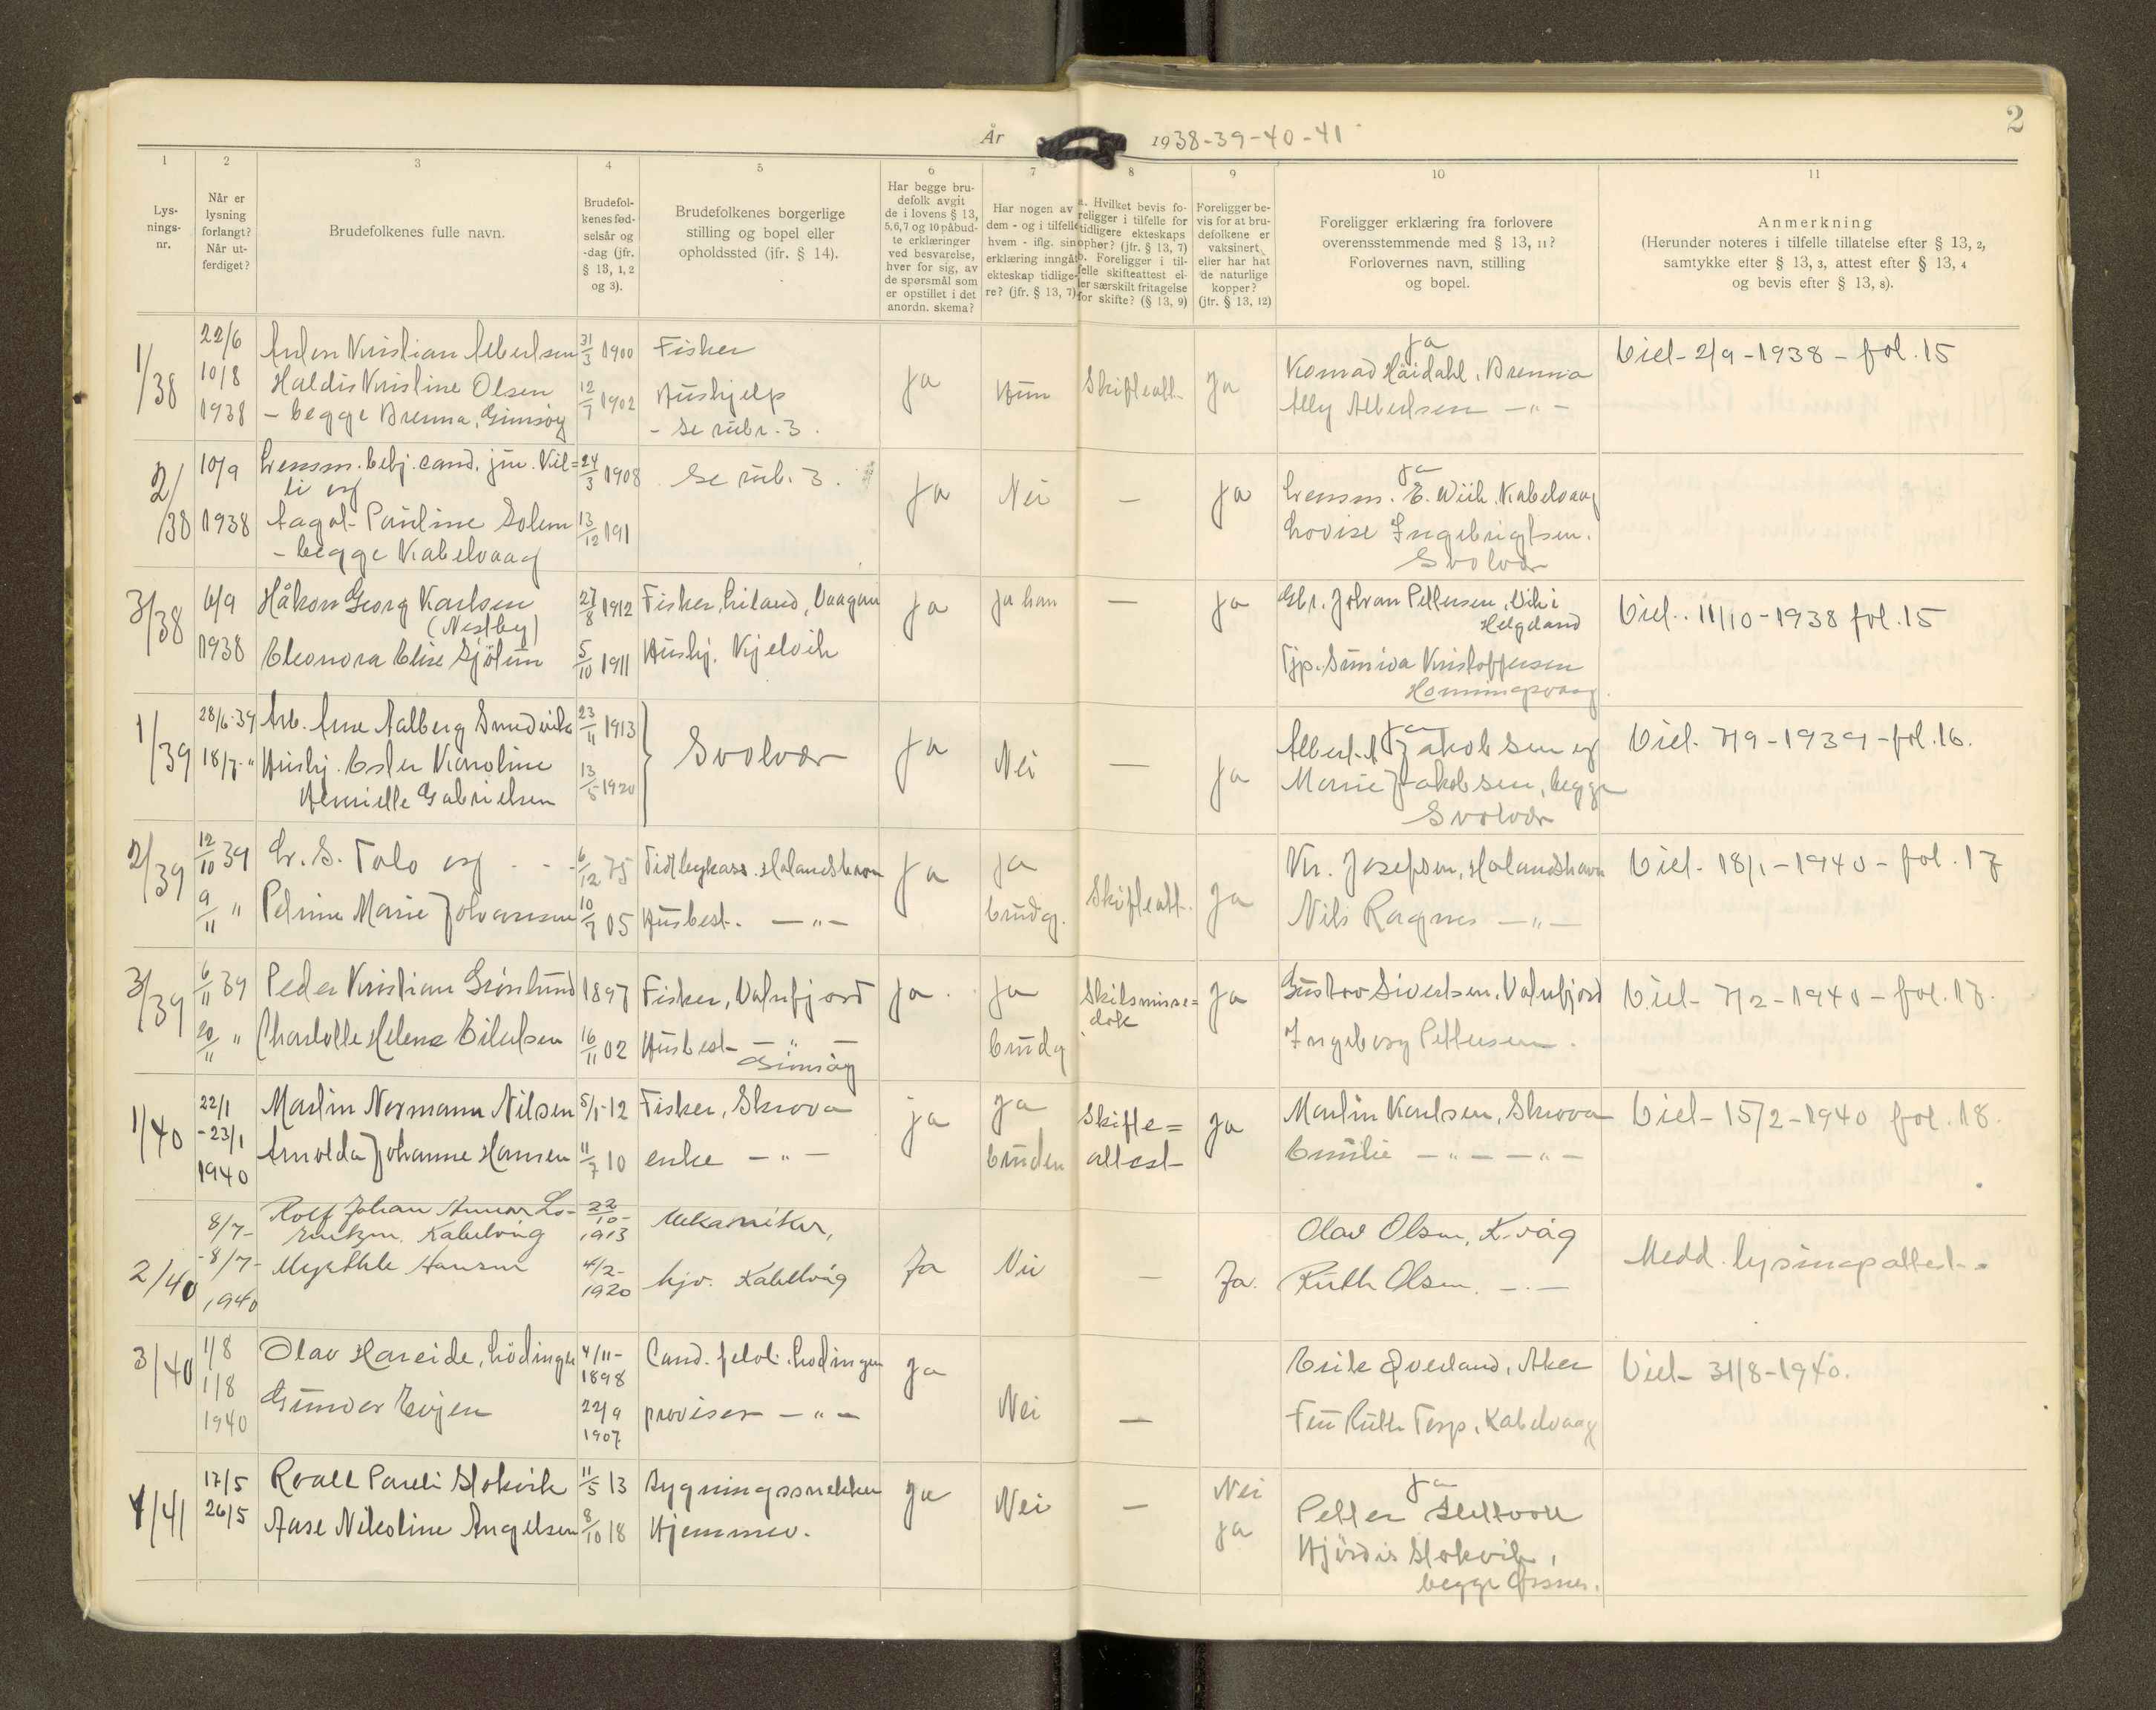 2
År 1938-39-40-41
1 2 3 4 5 6 7 8 9 10 11
Lys-
nings-
nr.
Når er
lysning
forlangt?
Når ut-
ferdiget?
Brudefolkenes fulle navn.
Brudefol-
kenes fød-
selsår og
-dag (jfr.
§ 13, 1, 2
og 3).
Brudefolkenes borgerlige
stilling og bopel eller
opholdssted (jfr. § 14).
Har begge bru-
defolk avgit
de i lovens § 13,
5,6,7 og 10 påbud-
te erklæringer
ved besvarelse,
hver for sig, av
de spørsmål som
er opstillet i det
anordn. skema?
Har nogen av
dem - og i tilfelle
hvem - iflg. sin
erklæring inngåt
ekteskap tidlige-
re? (jfr. § 13, 7)
a. Hvilket bevis fo-
religger i tilfelle for
tidligere ekteskaps
ophør? (jfr. § 13, 7)
b. Foreligger i til-
felle skifteattest el-
ler særskilt fritagelse
for skifte? (§ 13, 9)
Foreligger be-
vis for at bru-
defolkene er
vaksinert
eller har hat
de naturlige
kopper?
(jfr. § 13, 12)
Foreligger erklæring fra forlovere
overensstemmende med § 13, 11?
Forlovernes navn, stilling
og bopel.
Anmerkning
(Herunder noteres i tilfelle tillatelse efter § 13, 2,
samtykke efter § 13, 3, attest efter § 13, 4
og bevis efter § 13, 8).
1/38
22/6
10/8
1938
Anton Kristian Albertsen
Haldis Kristine Olsen
- begge Brenna, Gimsøy
31/3 1900
12/7 1902
Fisker
Hushjelp
- se rubr. 3.
Ja
Hun
Skifteatt.
Ja
Ja
Konrad Häidahl, Brenna
Ally Albertsen -"-
Viet - 2/9 - 1938 - fol. 15
2/38
10/9
1938
Lensm. betj. cand. jur.
og
Pauline Solem
- begge Kabelvaag
24/3 1908
13/12 191
Se rub. 3.
Ja
Nei
-
Ja
Ja
Lensm. E. Wiik. Kabelvaag
Lovise Ingebrigtsen.
Svolvær
3/38
6/9
1938
Håkon Georg Karlsen
(Nestby)
Eleonora Elise Sjölun
27/8 1912
5/10 1911
Fisker, Liland, Vaagan
Hushj. Kjelvik
Ja
Ja han
-
Ja
Gbr. Johan Pettersen, Vik i
Helgeland
Tjp. Sunniva Kristoffersen
Honningsvaag.
Viet. 11/10 - 1938 fol. 15
1/39
28/6-39
18/7-"
Arb. Arne Aalberg Smedvik
Hushj. Ester Karoline
Henriette Gabrielsen
23/11 1913
13/5 1920
Svolvær
Ja
Nei
-
Ja
Ja
Albert A. Jakobsen og
Marie Jakobsen, begge
Svolvær
Viet - 7/9 - 1939 - fol. 16.
2/39
12/10 39
9/11 "
L. S. Talo og - -
Petrine Marie Johansen
6/12 75
10/7 05
Holandshavn
Husbest. -"-
Ja
Ja
brudg.
Skifteatt.
Ja
Kr. Josefsen, Holandshavn
Nils Ragnes -"-
Viet - 18/1 - 1940 - fol. 17
3/39
6/11 39
20/11 "
Peder Kristian Grönlund
Charlotte Helene Eilertsen
1897
16/11 02
Fisker, Valnfjord
Husbest - " -
Gimsøy
Ja.
Ja
brudg
Skilsmisse=
dok
Ja
Gustav Sivertsen, Valnfjord
Ingeborg Pettersen.
Viet - 7/2 - 1940 - fol. 17.
1/40
22/1
-23/1
1940
Martin Normann Nilsen
Arnolda Johanne Hansen
5/1-12
11/7 10
Fisker, Skrova
enke -"-
ja
Ja
bruden
Skifte=
attest-
Ja
Martin Karlsen, Skrova
Emilie -"- -"-
Viet - 15/2 - 1940 fol. 18.
2/40
8/7-
-8/7-
1940
Rolf Johan Annar Lo-
rentzen, Kabelvåg
Myrthle Hansen
22/10-
1913
4/2-
1920
Mekaniker,
hjv. Kabelvåg
Ja
Nei
-
Ja.
Olav Olsen, K.våg
Ruth Olsen. -.-
Medd. lysingsattest.
3/40
1/8
1/8
1940
Olav Hareide, Lödingen
Gunvor Evjen
4/11-
1898
22/9
1907
Cand. filol. Lødingen
provisor -"-
Ja
Nei
-
Erik Øverland, Aker
Ruth Torp, Kabelvaag
Viet - 31/8 - 1940.
1/41
17/5
26/5
Roald Pareli Slokvik
Aase Nikoline Angelsen
11/5 13
8/10 18
Bygningssnekker
Hjemmev.
Ja
Nei
-
Nei
Ja
Ja
Petter Slettvoll
Hjördis Slokvik,
begge Ørsnes.